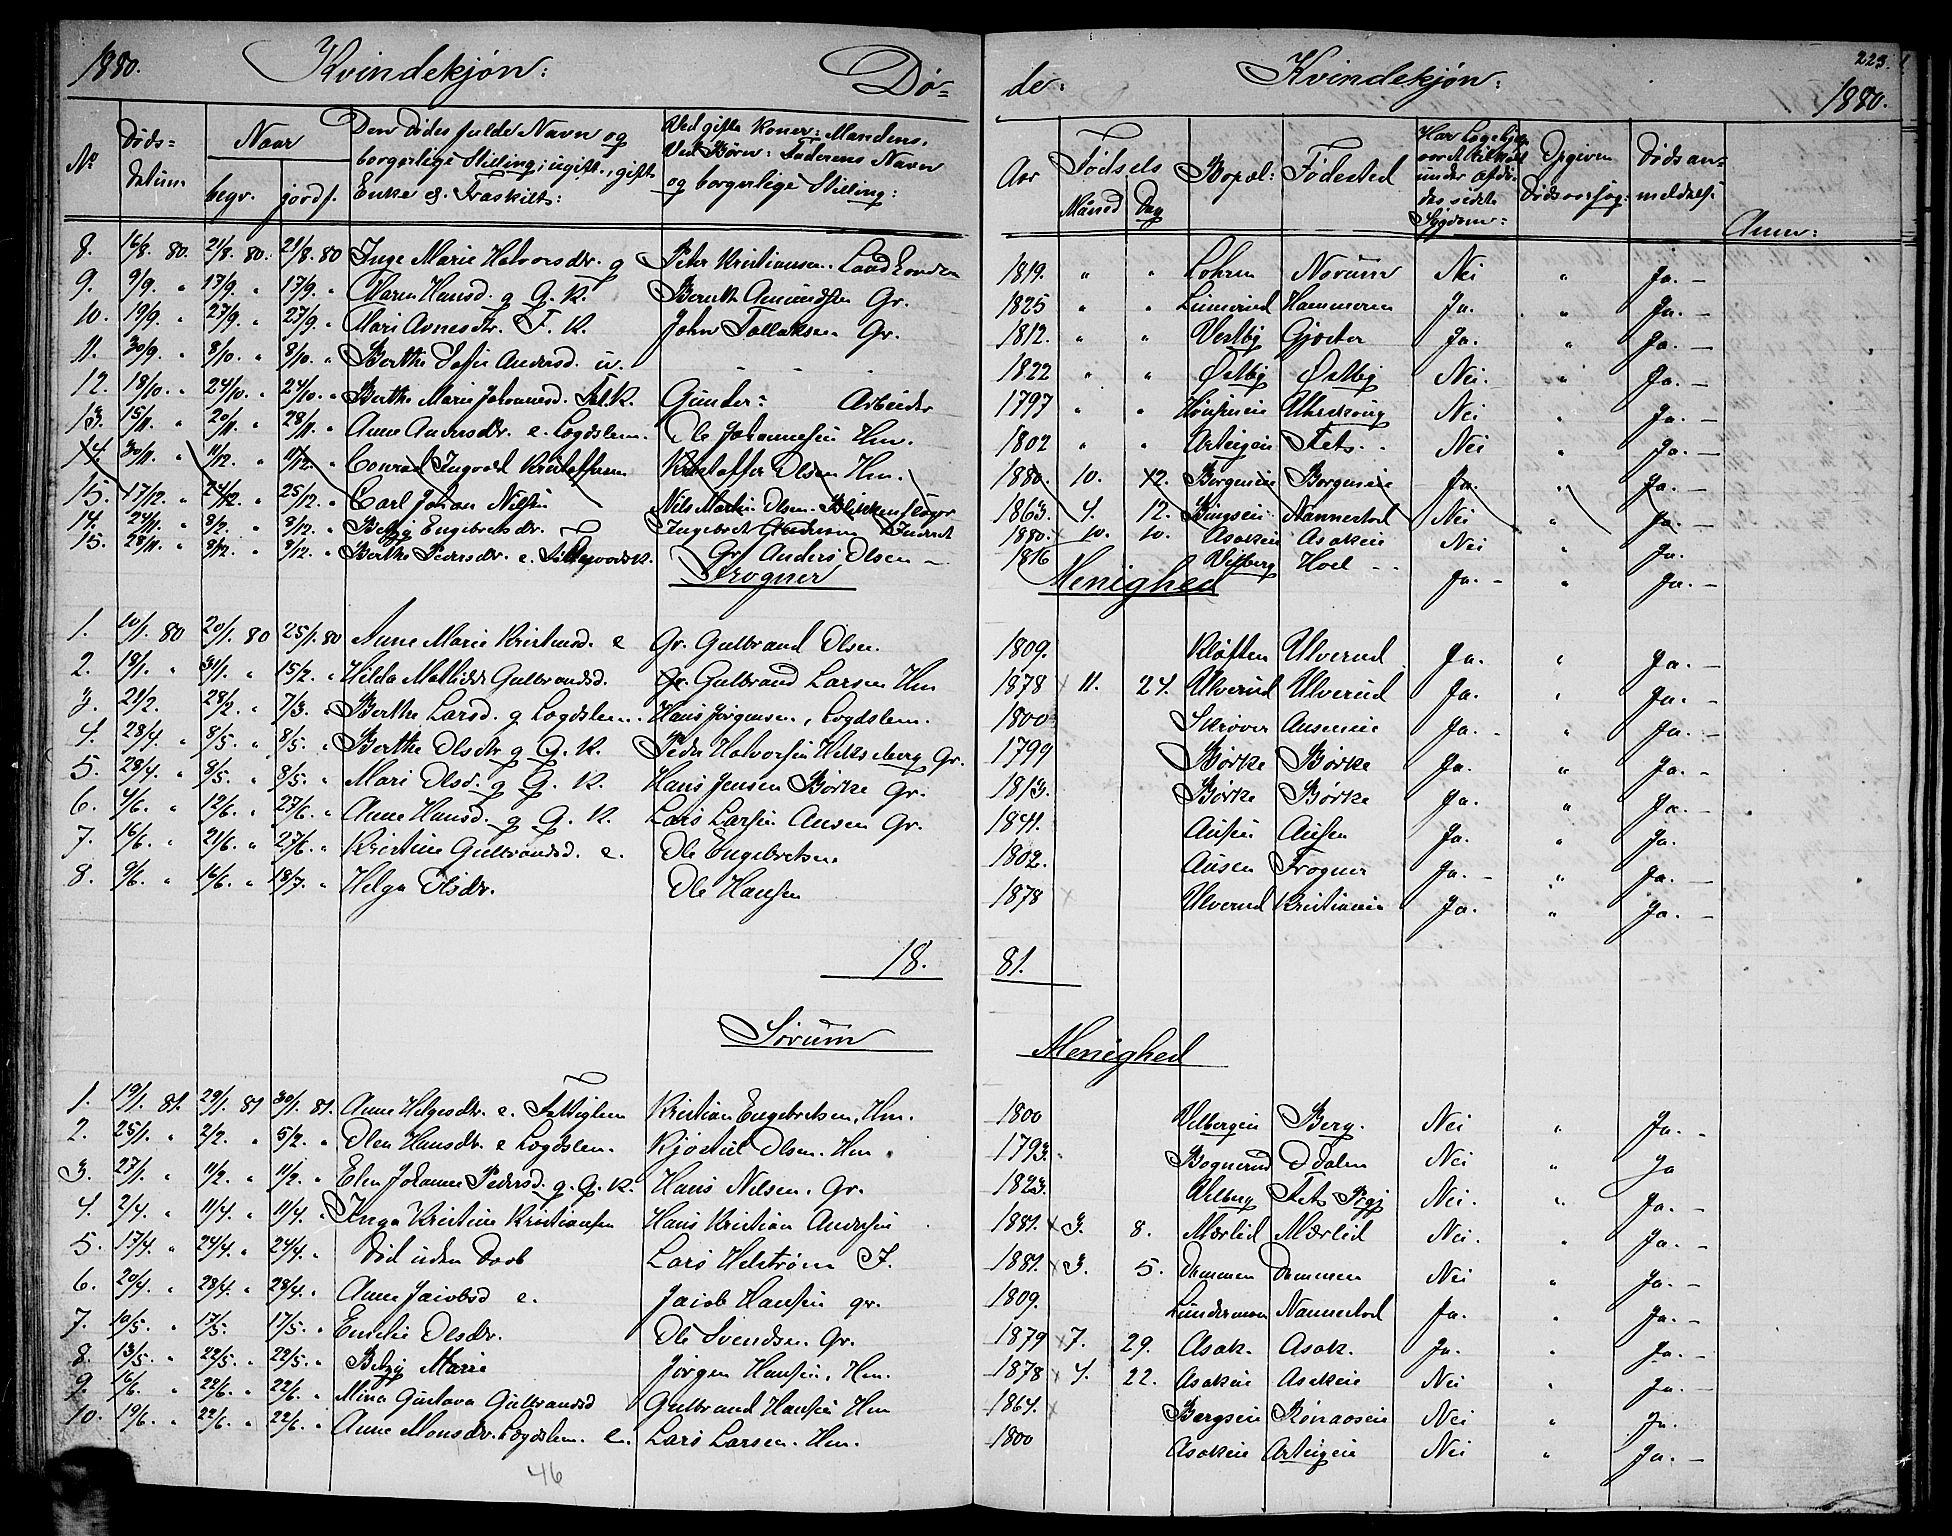 1880. Kvindekjøn: Dø= de: Kvindekjøn: 1880.
223.
No Døds= datum Naar begr. jordf. Den Dødes fulde Navn og borgerlige Stilling; ugift, gift Enke el. Fraskilt: Ved gifte Koner: Mandens, Ved Børn: Faderens Navn og borgerlige Stilling: Aar Fødsels Maaned Dag Bopæl: Fødested Opgiven Dødsaarsag: Dødsan= meldelse Anm:
8. 16/8. 80. 21/8. 80. 21/8. 80 Inge Marie Halvorsdr. g Peter Kristiansen. 1819. " " Lohren Norum Nei " Ja. —
9. 9/9. " 17/9. " 17/9. " Maren Hansd. g G. K. Bernth Amundsen Gr. 1825 " " Linnerud Hammeren Ja. " Ja. —
10. 19/9. " 27/9. " 27/9. " Mari Arnesdr. F. K. John Tollaksen Gr. 1812. " " Vestby Gjøster Ja. " Ja. —
11. 30/9. " 8/10. " 8/10. " Berthe Sofie Andersd. u. 1822 " " Østby Østby Nei. " Ja. —
12. 18/10. " 24/10. " 24/10. " Berthe Marie Johannesd. Fat. K. Gunder - Arbeider 1797 " " Urskoug Nei " Ja. —
13. 15/11. " 20/11. " 28/11. " Anne Andersdr. e. Logdslem. Ole Johannesen Hm. 1802 " " Arteigen Fets Nei " Ja. —
14. 30/11. " 11/12. " 11/12. " Conrad Ingvald Kristoffersen Kristoffer Olsen Hm. 1880. 10. 12. Borgeneie Borgeneie Ja. " Ja. —
15. 17/12. " 24/12. " 25/12. " Carl Johan Nilsen Nils Martin Olsen 1863. 4. 12. Bingseie Nannestad Nei " Ja. —
14. 24/11. " 8/12. " 8/12. " Betzy Engebretsdr. Ingebret Gundersen Inderst 1880. 10. 10. Asakeie Asakeie Nei " Ja.
15. 28/11. " 8/12. " 8/12. " Berthe Pedersdr. e. Gr. Anders Olsen — 1816 Vilberg Hoel Ja. — " Ja. —
Frogner Menighed
1. 10/1. 80 20/1. 80 25/1. 80 Anne Marie Kristensd. e Gr. Gulbrand Olsen. 1809. Kløften Ulverud Ja. " Ja. —
2. 18/1. " 31/1. " 15/2. " Hilda Mathilde Gulbrandsd. Gulbrand Larsen Hm 1878 × 11. 24. Ulverud Ulverud Ja. " Ja. —
3. 21/2. 28/2. " 7/3. " Berthe Larsd. g Logdslem. Hans Jørgensen, Logdslem. 1800 Skrøver Auseneie Ja. - " Ja. —
4. 28/4. " 8/5. " 8/5. " Berthe Olsdr. g G. K. Peder Halvorsen Hekseberg Gr. 1799 Børke Børke Ja. " Ja. —
5. 28/4. " 8/5. " 8/5. " Mari Olsd. g G. K. Hans Jensen Børke Gr. 1813. Børke Børke Ja. " Ja. —
6. 4/6. " 12/6. " 27/6. " Anne Hansd. g G. K. Lars Larsen Ausen Gr. 1841. Ausen Ausen Ja. " Ja.
7. 16/6. " 21/6. " 27/6. " Kristine Gulbrandsd. e. Ole Engebretsen 1802. Ausen Frogner Ja. — " Ja. —
8. 9/6. " 16/6. " 18/7. " Helga Olsdr. Ole Hansen 1878 × Ulverud Kristiania Ja. " Ja. —
18. 81.
Sørum Menighed
1. 19/1. 81. 29/1. 81 30/1. 81. Anne Helgesdr. e. Fattiglem Kristian Engebretsen, Hm. 1800 Vilbergeie Berg. Nei " Ja.
2. 25/1. " 2/2. " 5/2. " Olea Hansdr. e Logdslem. Kjøstul Olsen. Hm. 1793. Bognerud Odalen Nei " Ja
3. 27/1. " 11/2. " 11/2. " Elen Johanne Pedersd. g. G. K. Hans Nilsen. Gr. 1823. Vilberg Fets Prgj Nei. " Ja. —
4. 2/4. " 11/4. " 11/4. " Inga Kristine Kristiansen Hans Kristian Andersen 1881. × 3. 8. Mærlid Mærlid Nei. " Ja. —
5. 17/4. " 24/4. " 24/4. " Død uden Daab Lars Helstrøm I. 1881. × 3. 5. Dammen Dammen Nei " Ja. —
6. 20/4. " 28/4. " 28/4. " Anne Jacobsd e. Jacob Hansen gr. 1809. Lundermoen Nannestad Ja. " Ja. —
7. 10/5. " 17/5. 17/5. " Emilie Olsdr. Ole Svendsen Gr. 1879 × 7. 29. Asak. Asak. Ja. " Ja. —
8. 13/5. " 22/5. " 22/5. " Betzy Marie Jørgen Hansen, Hm. 1878 × 4. 22. Asakeie Asakeie Nei " Ja. —
9. 16/6. " 22/6. " 22/6. " Mina Gustava Gulbrandsd Gulbrand Hansen Hm 1864. × Bergseie Rønaaseie Nei " Ja.
10. 19/6. " 22/6. " 22/6. " Anne Monsdr. Logdslem. e. Lars Larsen. Hm. 1800 Asakeie Arteigeie Nei " Ja. —
46